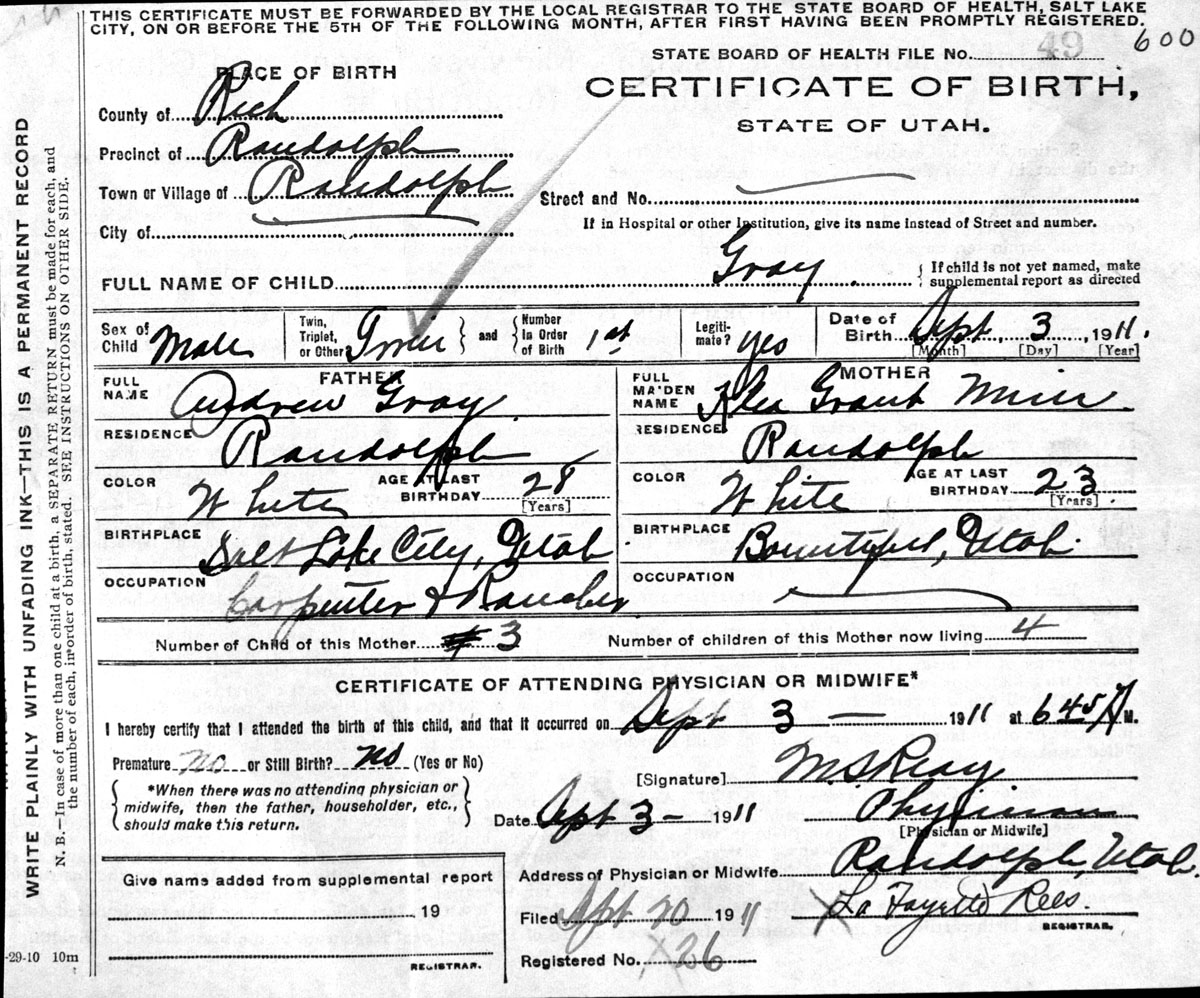 THIS CERTIFICATE MUST BE FORWARDED BY THE LOCAL REGISTRAR TO THE STATE BOARD OF HEALTH, SALT LAKE
CITY, ON OR BEFORE THE 5TH OF THE FOLLOWING MONTH, AFTER FIRST HAVING BEEN PROMPTLY REGISTERED.
600
STATE BOARD OF HEALTH FILE No. 49
CERTIFICATE OF BIRTH,
STATE OF UTAH.
PLACE OF BIRTH
County of Rich
Precinct of Randolph
Town or Village of Randolph
City of
Street and No.
If in Hospital or other Institution, give its name instead of Street and number.
FULL NAME OF CHILD Gray { If child is not yet named, make
supplemental report as directed
Sex of Child Male
Twin, Triplet, or Other Twin } and { Number In Order of Birth 1st
Legiti-mate? yes
Date of Birth Sept, 3, 1911.
[Month] [Day] [Year]
FATHER
FULL NAME Andrew Gray
RESIDENCE Randolph
COLOR White AGE AT LAST BIRTHDAY 28
[Years]
BIRTHPLACE Salt Lake City, Utah
OCCUPATION Carpenter & Rancher
MOTHER
FULL MAIDEN NAME Grant Muir
RESIDENCE Randolph
COLOR White AGE AT LAST BIRTHDAY 23
[Years]
BIRTHPLACE Bountiful, Utah
OCCUPATION
Number of Child of this Mother 3 Number of children of this Mother now living 4
CERTIFICATE OF ATTENDING PHYSICIAN OR MIDWIFE*
I hereby certify that I attended the birth of this child, and that it occurred on Sept 3 — 1911 at 6 45 A M.
Premature no or Still Birth? no (Yes or No)
{ *When there was no attending physician or
midwife, then the father, householder, etc.,
should make this return. }
[Signature] M S Reay
Date Sept 3 - 1911 Physician
[Physician or Midwife]
Address of Physician or Midwife Randolph, Utah.
Filed Sept 20 1911 La Fayette Rees.
REGISTRAR.
Registered No. 26
Give name added from supplemental report
19
REGISTRAR.
-29-10 10m
WRITE PLAINLY WITH UNFADING INK—THIS IS A PERMANENT RECORD
N. B.—In case of more than one child at a birth, a SEPARATE RETURN must be made for each, and
the number of each, in order of birth, stated. SEE INSTRUCTIONS ON OTHER SIDE.